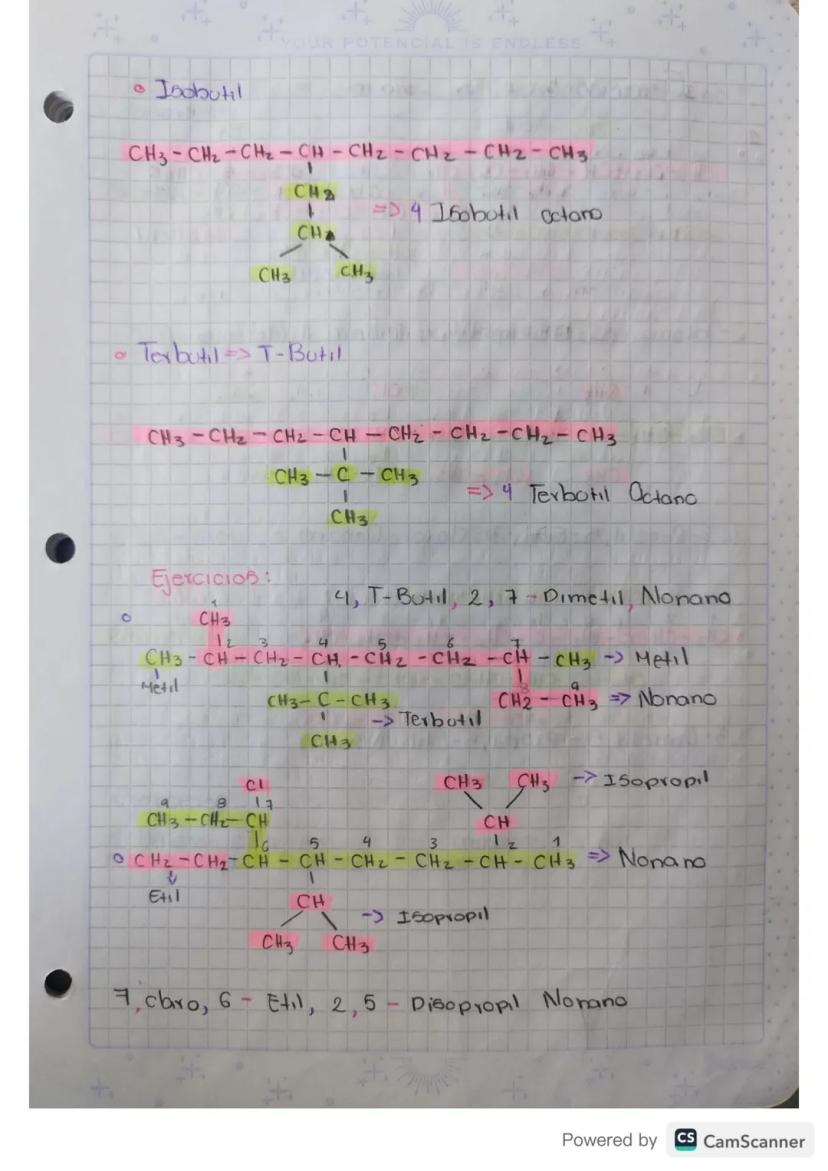 YOUR POTENCIAL IS ENDLESS
Isobutil
CH3 - CH2 - CH2 - CH - CH2 - CH2 - CH2 - CH3
CH2
=> 4 Isobutil octano
CH
CH3 CH3
Terbutil => T-Butil
CH3 - CH2 - CH2 - CH - CH2 - CH2 - CH2 - CH3
CH3 - C - CH3
=> 4 Terbutil Octano
CH3
Ejercicios:
4, T-Butil, 2, 7 - Dimetil, Nonano
1
CH3
2 3 4 5 6 7
CH3 - CH - CH2 - CH - CH2 - CH2 - CH - CH3 -> Metil
Metil
8 9
CH3 - C - CH3 CH2 - CH3 => Nonano
-> Terbutil
CH3
Cl CH3 CH3 -> Isopropil
9 8 7
CH3 - CH2 - CH CH
6 5 4 3 2 1
CH2 - CH2 - CH - CH - CH2 - CH2 - CH - CH3 => Nonano
Etil
CH -> Isopropil
CH3 CH3
7, cloro, 6 - Etil, 2, 5 - Disopropil Nonano
Powered by CS CamScanner